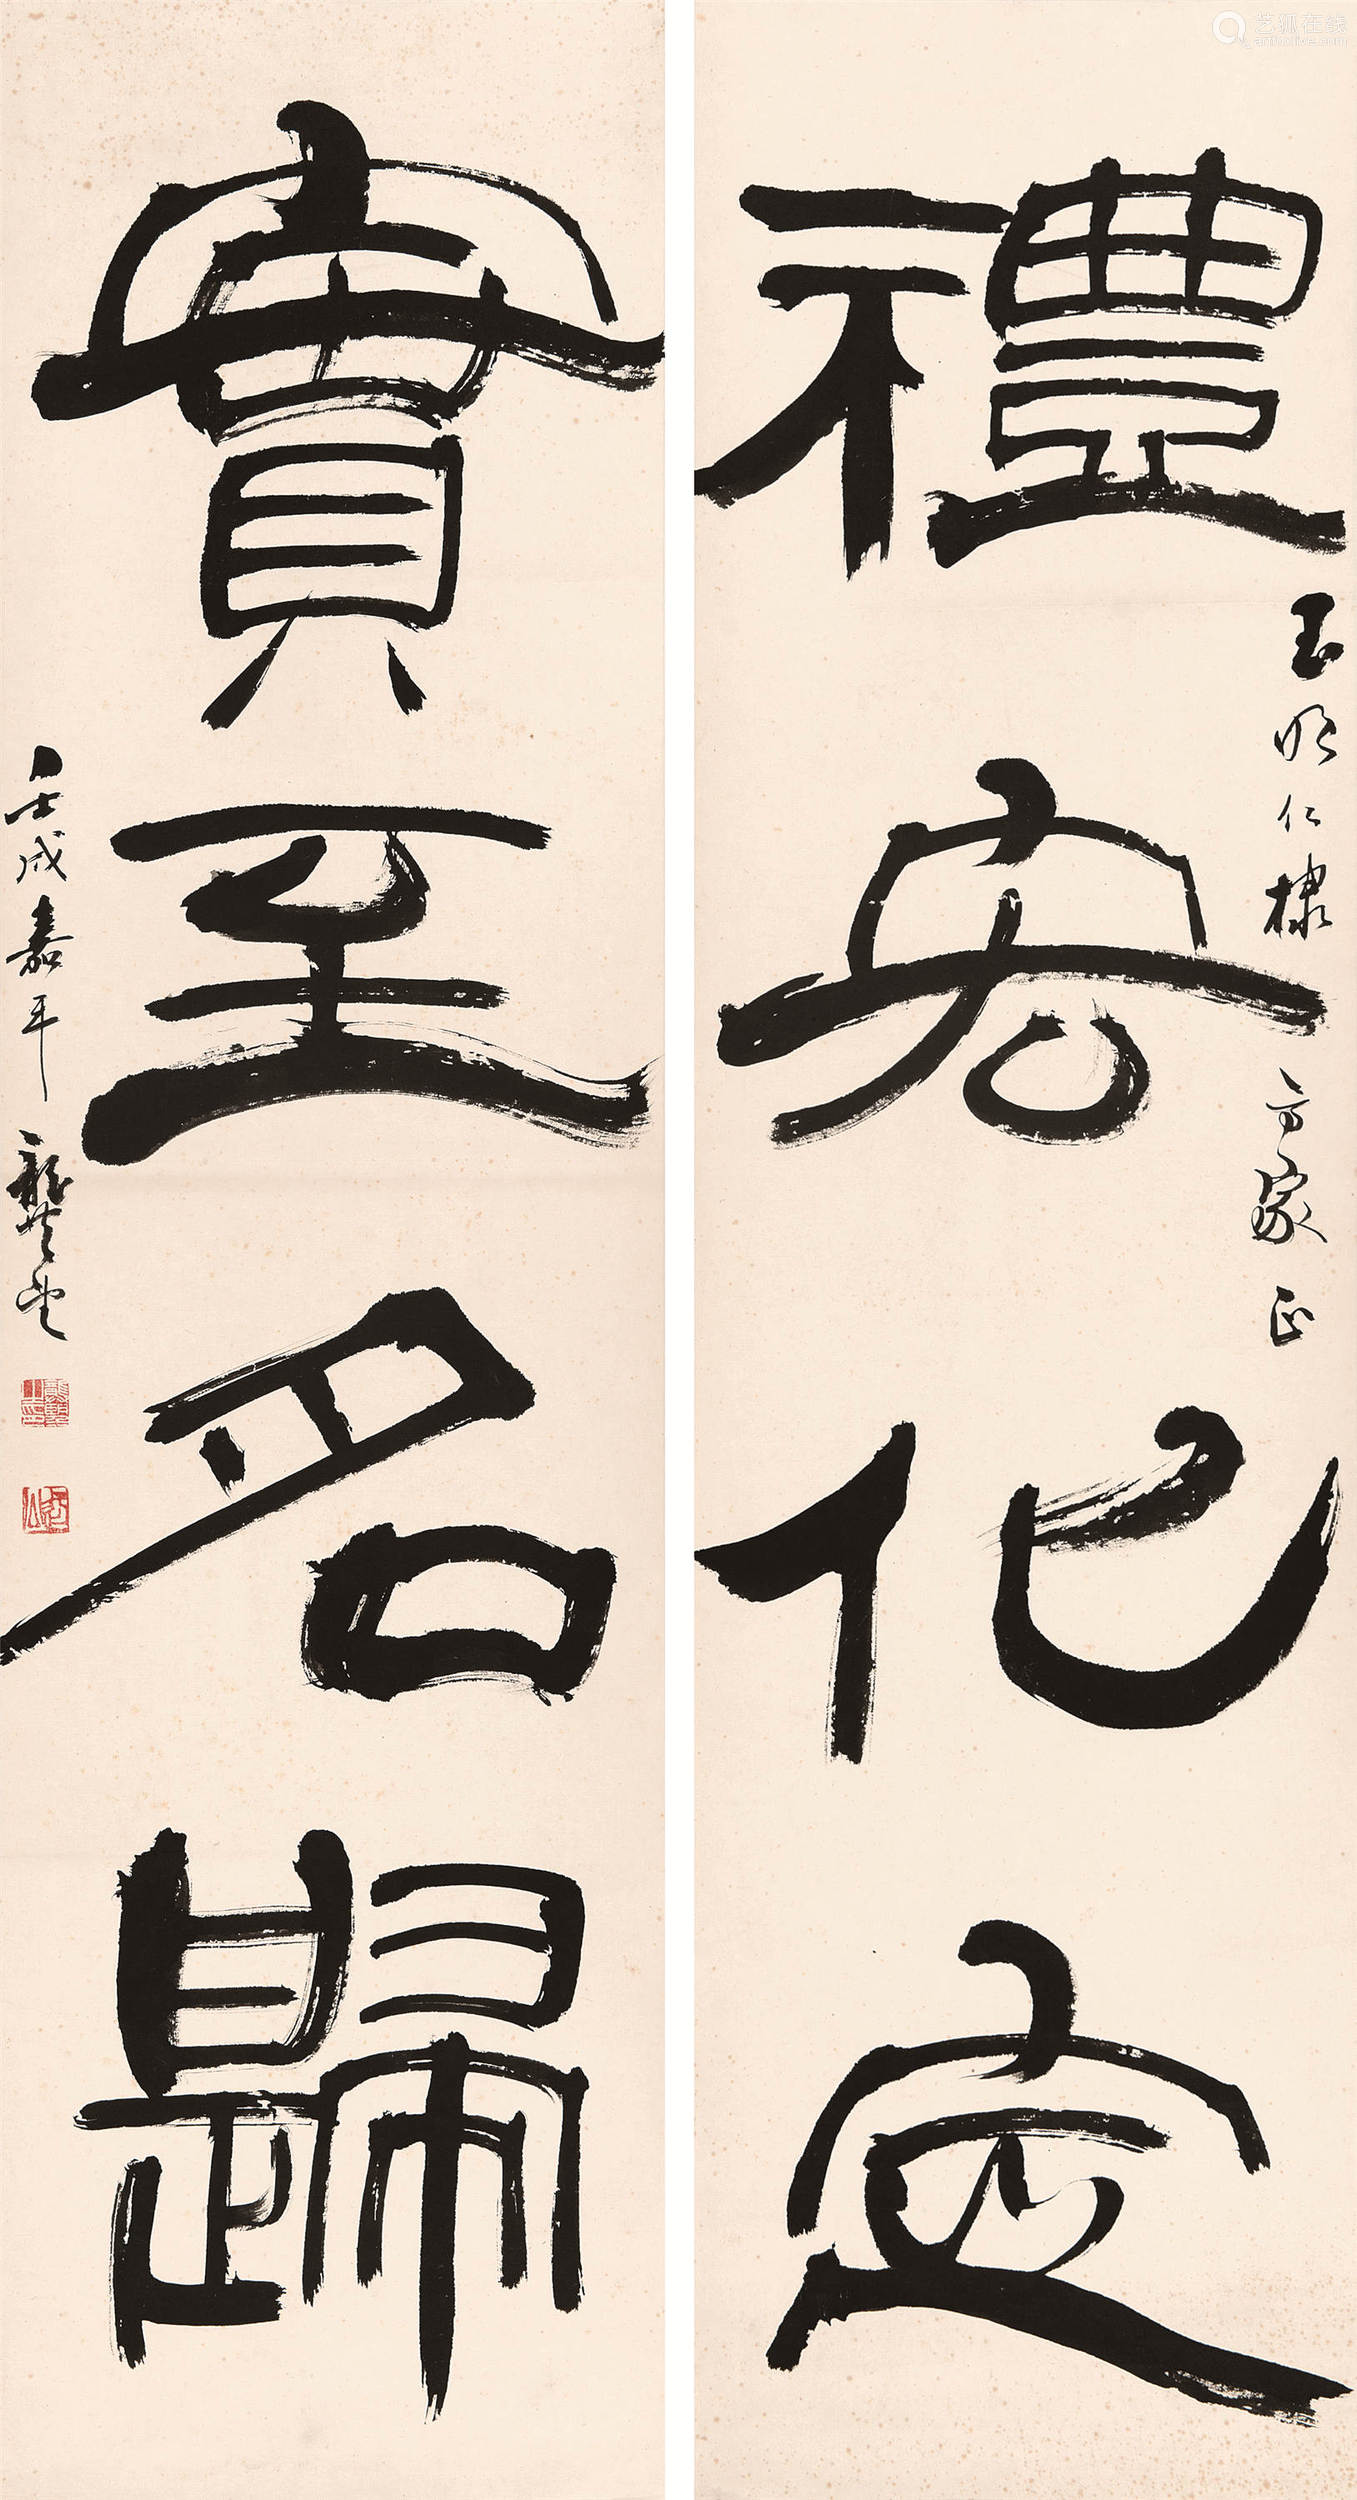 禮宏化定
玉明仁棣 方家正
實至名歸
壬戌嘉平 龔望
艺狐在线
artfoxlive.com